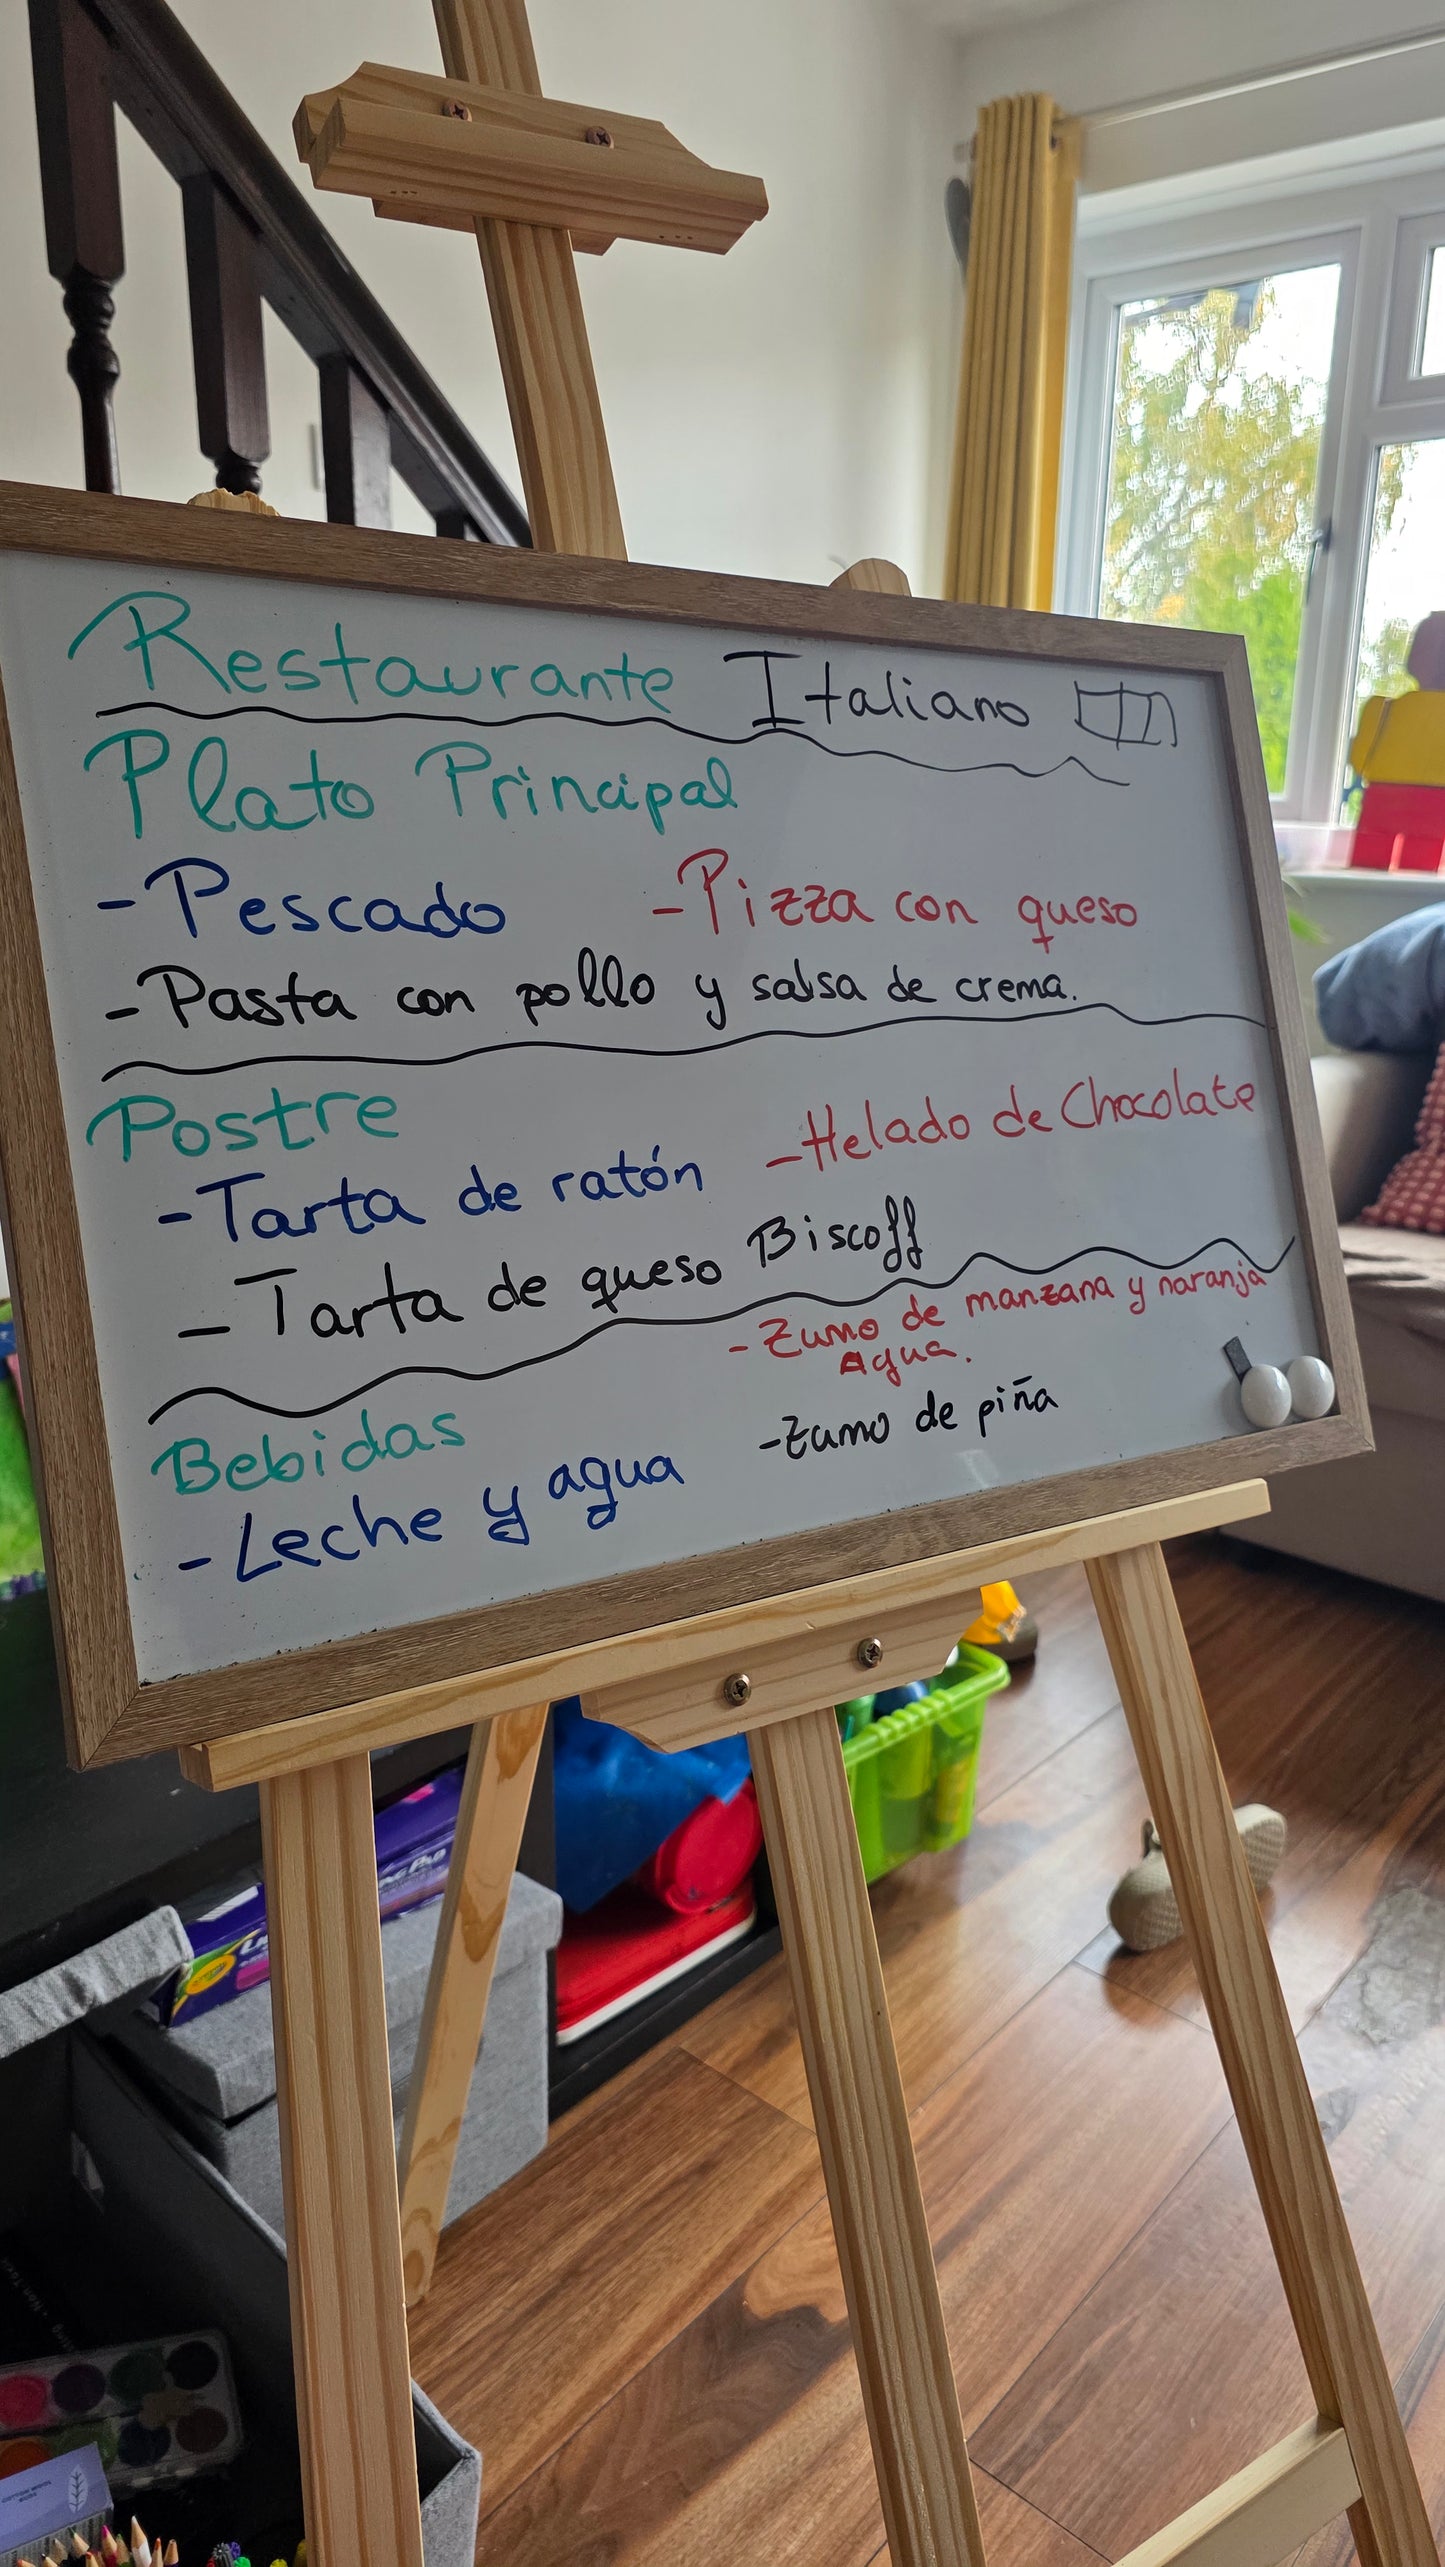 Restaurante Italiano
Plato Principal
- Pescado - Pizza con queso
- Pasta con pollo y salsa de crema.
Postre
- Helado de Chocolate
- Tarta de ratón
- Tarta de queso Biscoff
- Zumo de manzana y naranja
Agua.
Bebidas
- Zumo de piña
- Leche y agua